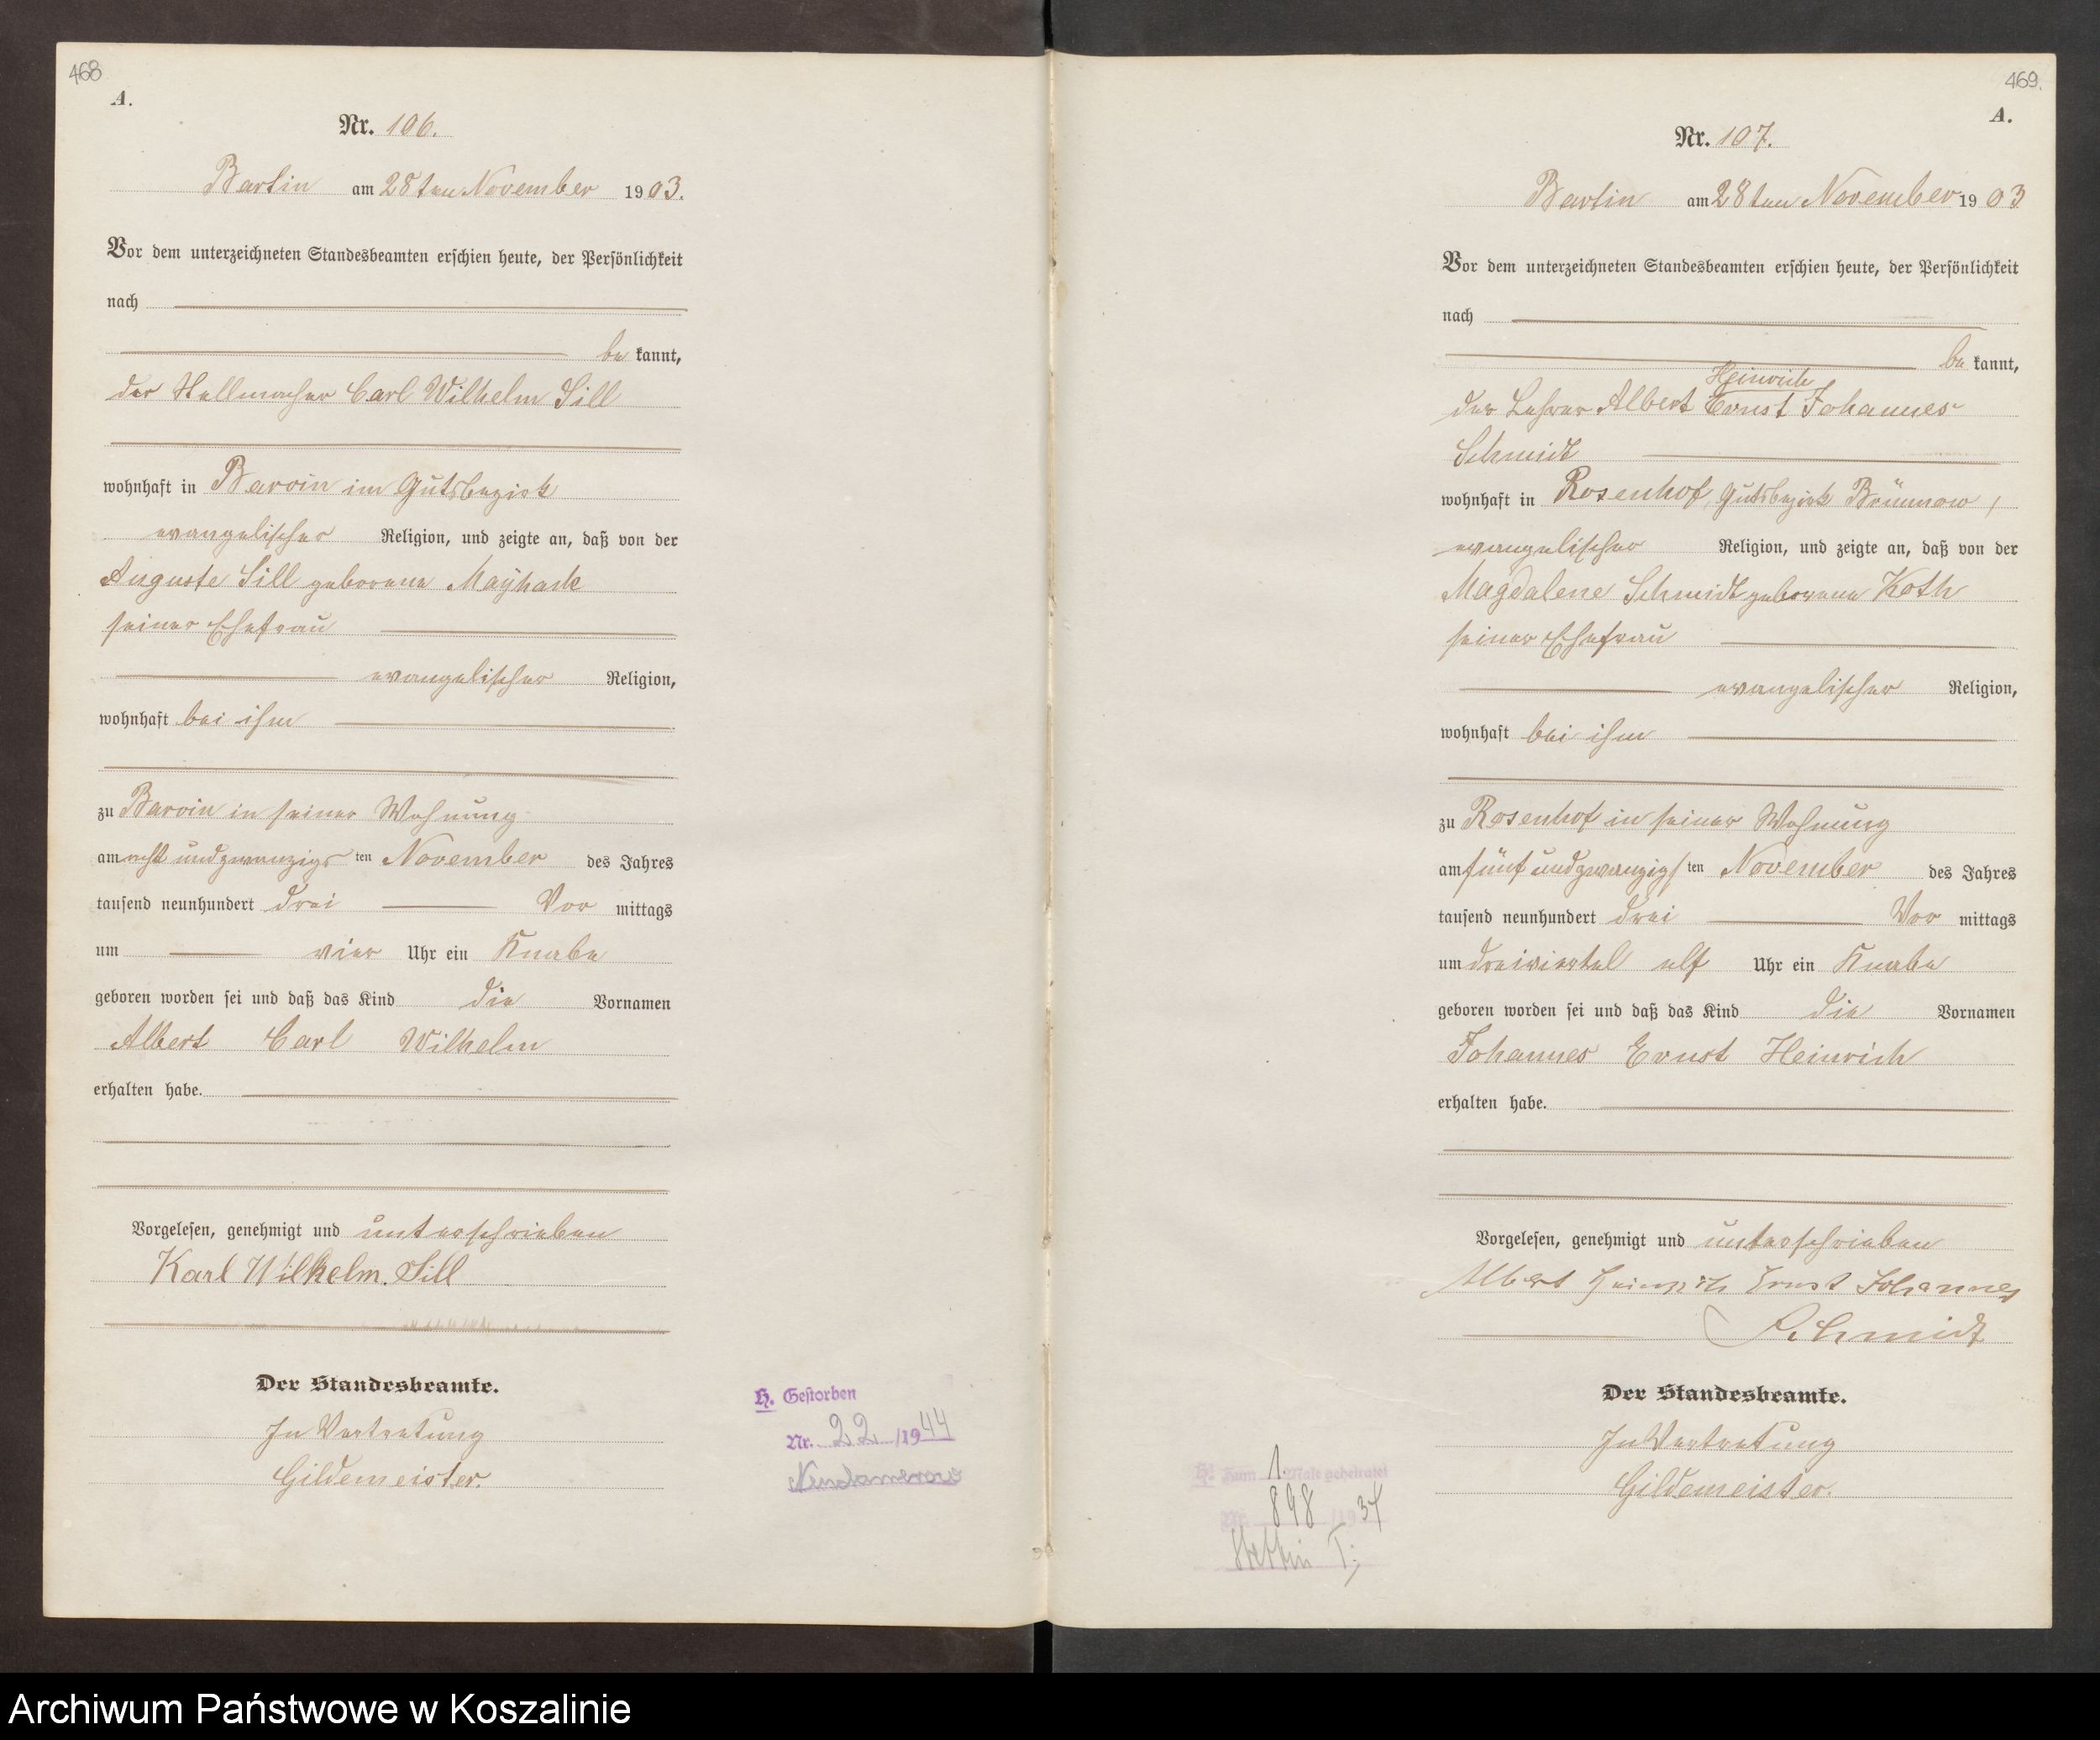 468
A.
Nr. 106.
Bartin am 28ten November 1903.
Vor dem unterzeichneten Standesbeamten erschien heute, der Persönlichkeit
nach
bekannt,
der Stellmacher Carl Wilhelm Sill
wohnhaft in Barvin im Gutsbezirk
evangelischer Religion, und zeigte an, daß von der
Auguste Sill geborene
seiner Ehefrau
evangelischer Religion,
wohnhaft bei ihm
zu Barvin in seiner Wohnung
am acht und zwanzigsten November des Jahres
tausend neunhundert drei Vor mittags
um vier Uhr ein Knabe
geboren worden sei und daß das Kind die Vornamen
Albert Carl Wilhelm
erhalten habe.
Vorgelesen, genehmigt und unterschrieben
Karl Wilhelm Sill
Der Standesbeamte.
In Vertretung
Gildemeister.
H. Gestorben
Nr. 22 /1944
469.
A.
Nr. 107.
Bartin am 28ten November 1903
Vor dem unterzeichneten Standesbeamten erschien heute, der Persönlichkeit
nach
bekannt,
Heinrich
der Lehrer Albert Ernst Johannes
Schmidt
wohnhaft in Rosenhof, Gutsbezirk Brünnow,
evangelischer Religion, und zeigte an, daß von der
Magdalene Schmidt geborene Koth
seiner Ehefrau
evangelischer Religion,
wohnhaft bei ihm
zu Rosenhof in seiner Wohnung
am fünf und zwanzigsten November des Jahres
tausend neunhundert drei Vor mittags
um dreiviertel elf Uhr ein Knabe
geboren worden sei und daß das Kind die Vornamen
Johannes Ernst Heinrich
erhalten habe.
Vorgelesen, genehmigt und unterschrieben
Albert Heinrich Ernst Johannes
Schmidt
Der Standesbeamte.
In Vertretung
Gildemeister.
H. Zum 1. Male geheiratet
Nr. 898 /1934
Stettin I.
Archiwum Państwowe w Koszalinie